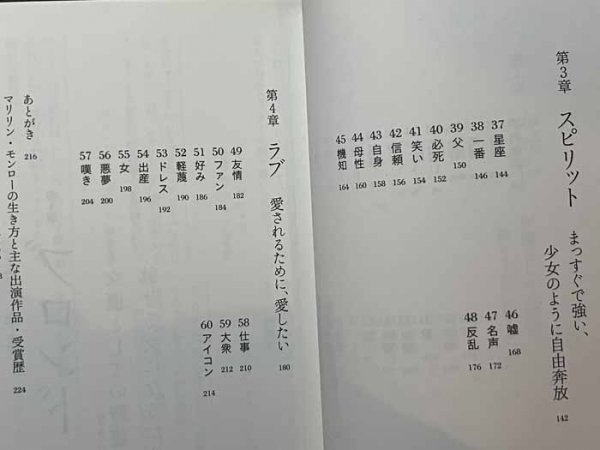 第3章 スピリット まっすぐで強い、
少女のように自由奔放 142
37 星座 144
38 一番 146
39 父 150
40 必死 152
41 笑い 154
42 信頼 156
43 自身 158
44 母性 160
45 機知 164
46 嘘 168
47 名声 172
48 反乱 176
第4章 ラブ 愛されるために、愛したい 180
49 友情 182
50 ファン 184
51 好み 186
52 軽蔑 190
53 ドレス 192
54 出産 196
55 女 198
56 悪夢 200
57 嘆き 204
58 仕事 210
59 大衆 212
60 アイコン 214
あとがき 216
マリリン・モンローの生き方と主な出演作品・受賞歴 224